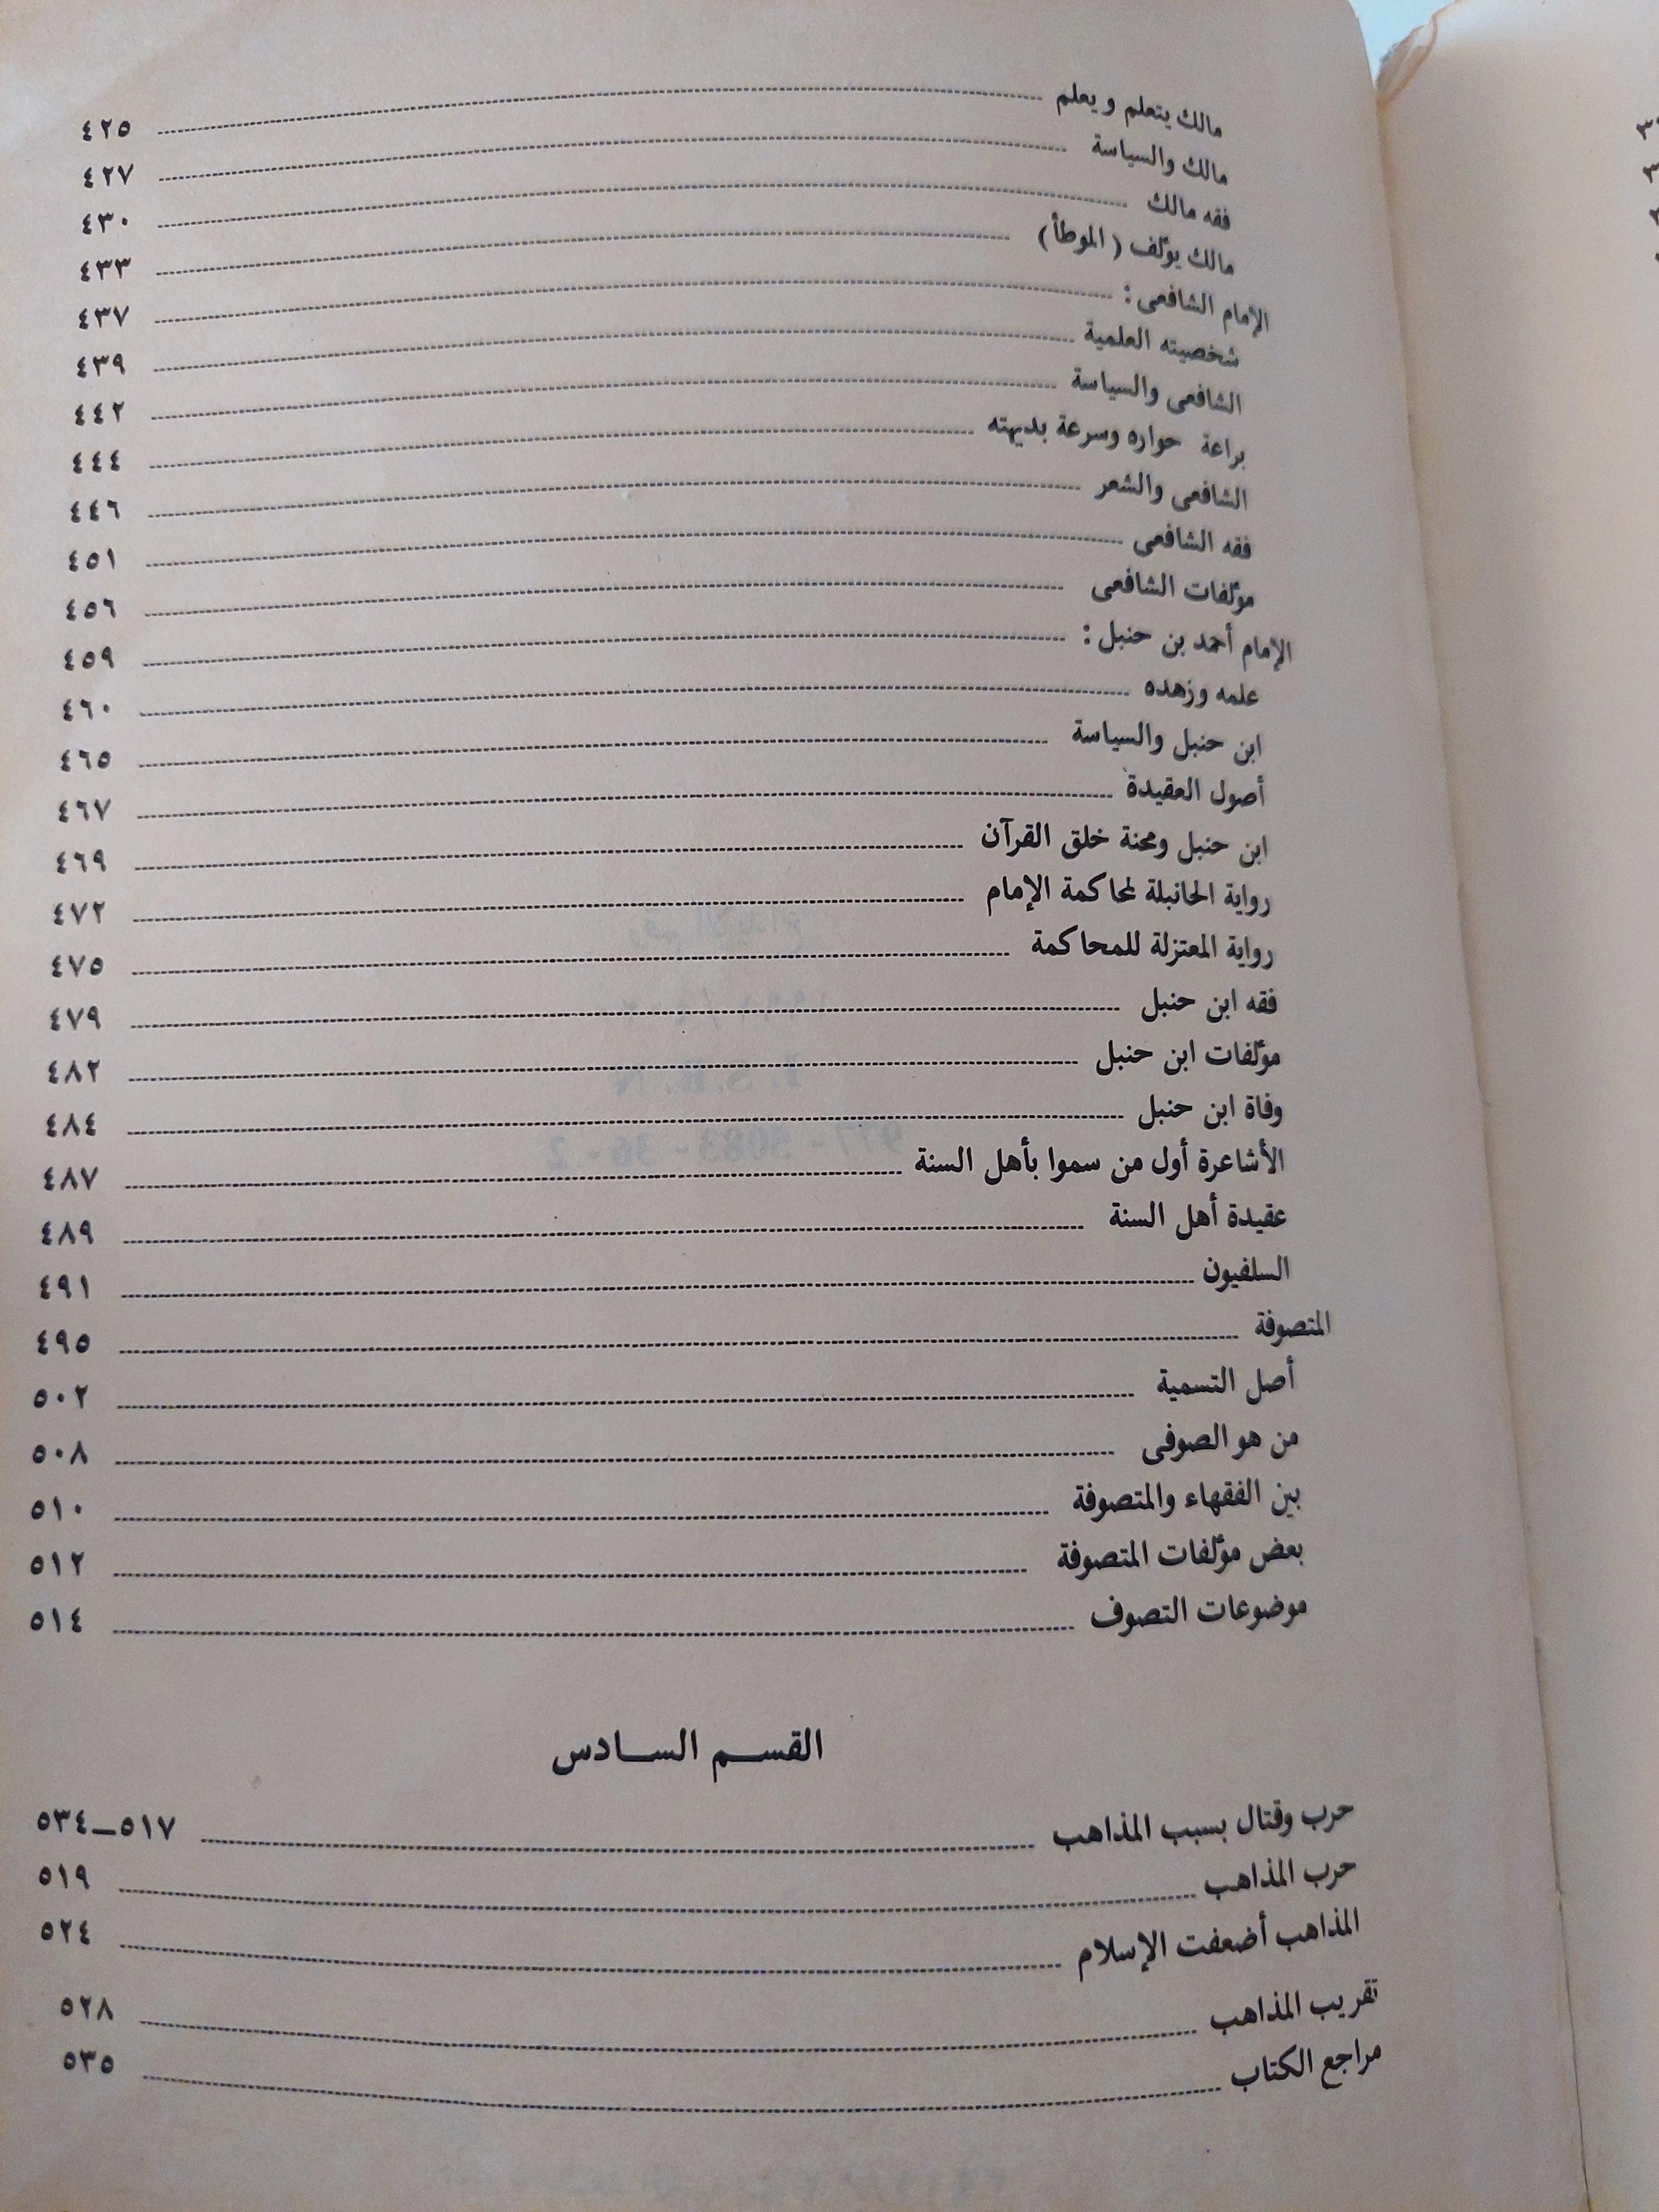 مالك يتعلم ويعلم ٤٢٥
مالك والسياسة ٤٢٧
فقه مالك ٤٣٠
مالك يؤلف (الموطأ) ٤٣٣
الإمام الشافعى : ٤٣٧
شخصيته العلمية ٤٣٩
الشافعى والسياسة ٤٤٢
براعة حواره وسرعة بديهته ٤٤٤
الشافعى والشعر ٤٤٦
فقه الشافعى ٤٥١
مؤلفات الشافعى ٤٥٦
الإمام أحمد بن حنبل : ٤٥٩
علمه وزهده ٤٦٠
ابن حنبل والسياسة ٤٦٥
أصول العقيدة ٤٦٧
ابن حنبل ومحنة خلق القرآن ٤٦٩
رواية الحانبلة لمحاكمة الإمام ٤٧٢
رواية المعتزلة للمحاكمة ٤٧٥
فقه ابن حنبل ٤٧٩
مؤلفات ابن حنبل ٤٨٢
وفاة ابن حنبل ٤٨٤
الأشاعرة أول من سموا بأهل السنة ٤٨٧
عقيدة أهل السنة ٤٨٩
السلفيون ٤٩١
المتصوفة ٤٩٥
أصل التسمية ٥٠٢
من هو الصوفى ٥٠٨
بين الفقهاء والمتصوفة ٥١٠
بعض مؤلفات المتصوفة ٥١٢
موضوعات التصوف ٥١٤
القسم السادس
حرب وقتال بسبب المذاهب ٥١٧ــ٥٣٤
حرب المذاهب ٥١٩
المذاهب أضعفت الإسلام ٥٢٤
تقريب المذاهب ٥٢٨
مراجع الكتاب ٥٣٥